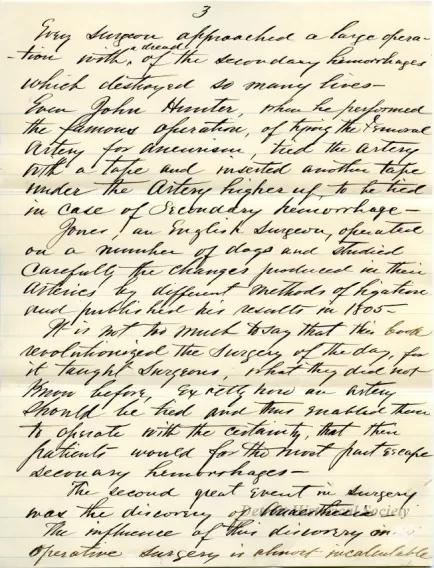 3
Every surgeon approached a large opera-
-tion with a dread of the secondary hemorrhages
which destroyed so many lives-
Even John Hunter, when he performed
the famous operation, of tying the Femoral
Artery for aneurism, tied the artery
with a tape and inserted another tape
under the Artery higher up, to be tied
in case of Secondary hemorrhage-
Jones, an English Surgeon, operated
on a number of dogs and studied
carefully the changes produced in their
arteries by different methods of ligation
and published his results in 1805-
It is not too much to say that this book
revolutionized the surgery of the day, for
it taught surgeons, what they did not
know before, exactly how an artery
should be tied and thus enabled them
to operate with the certainty, that their
patients would for the most part escape
seconary hemorrhages-
The second great Event in surgery
was the discovery of Anaesthesia
The influence of this discovery on
operative surgery is almost incalculable
Detroit Historical Society